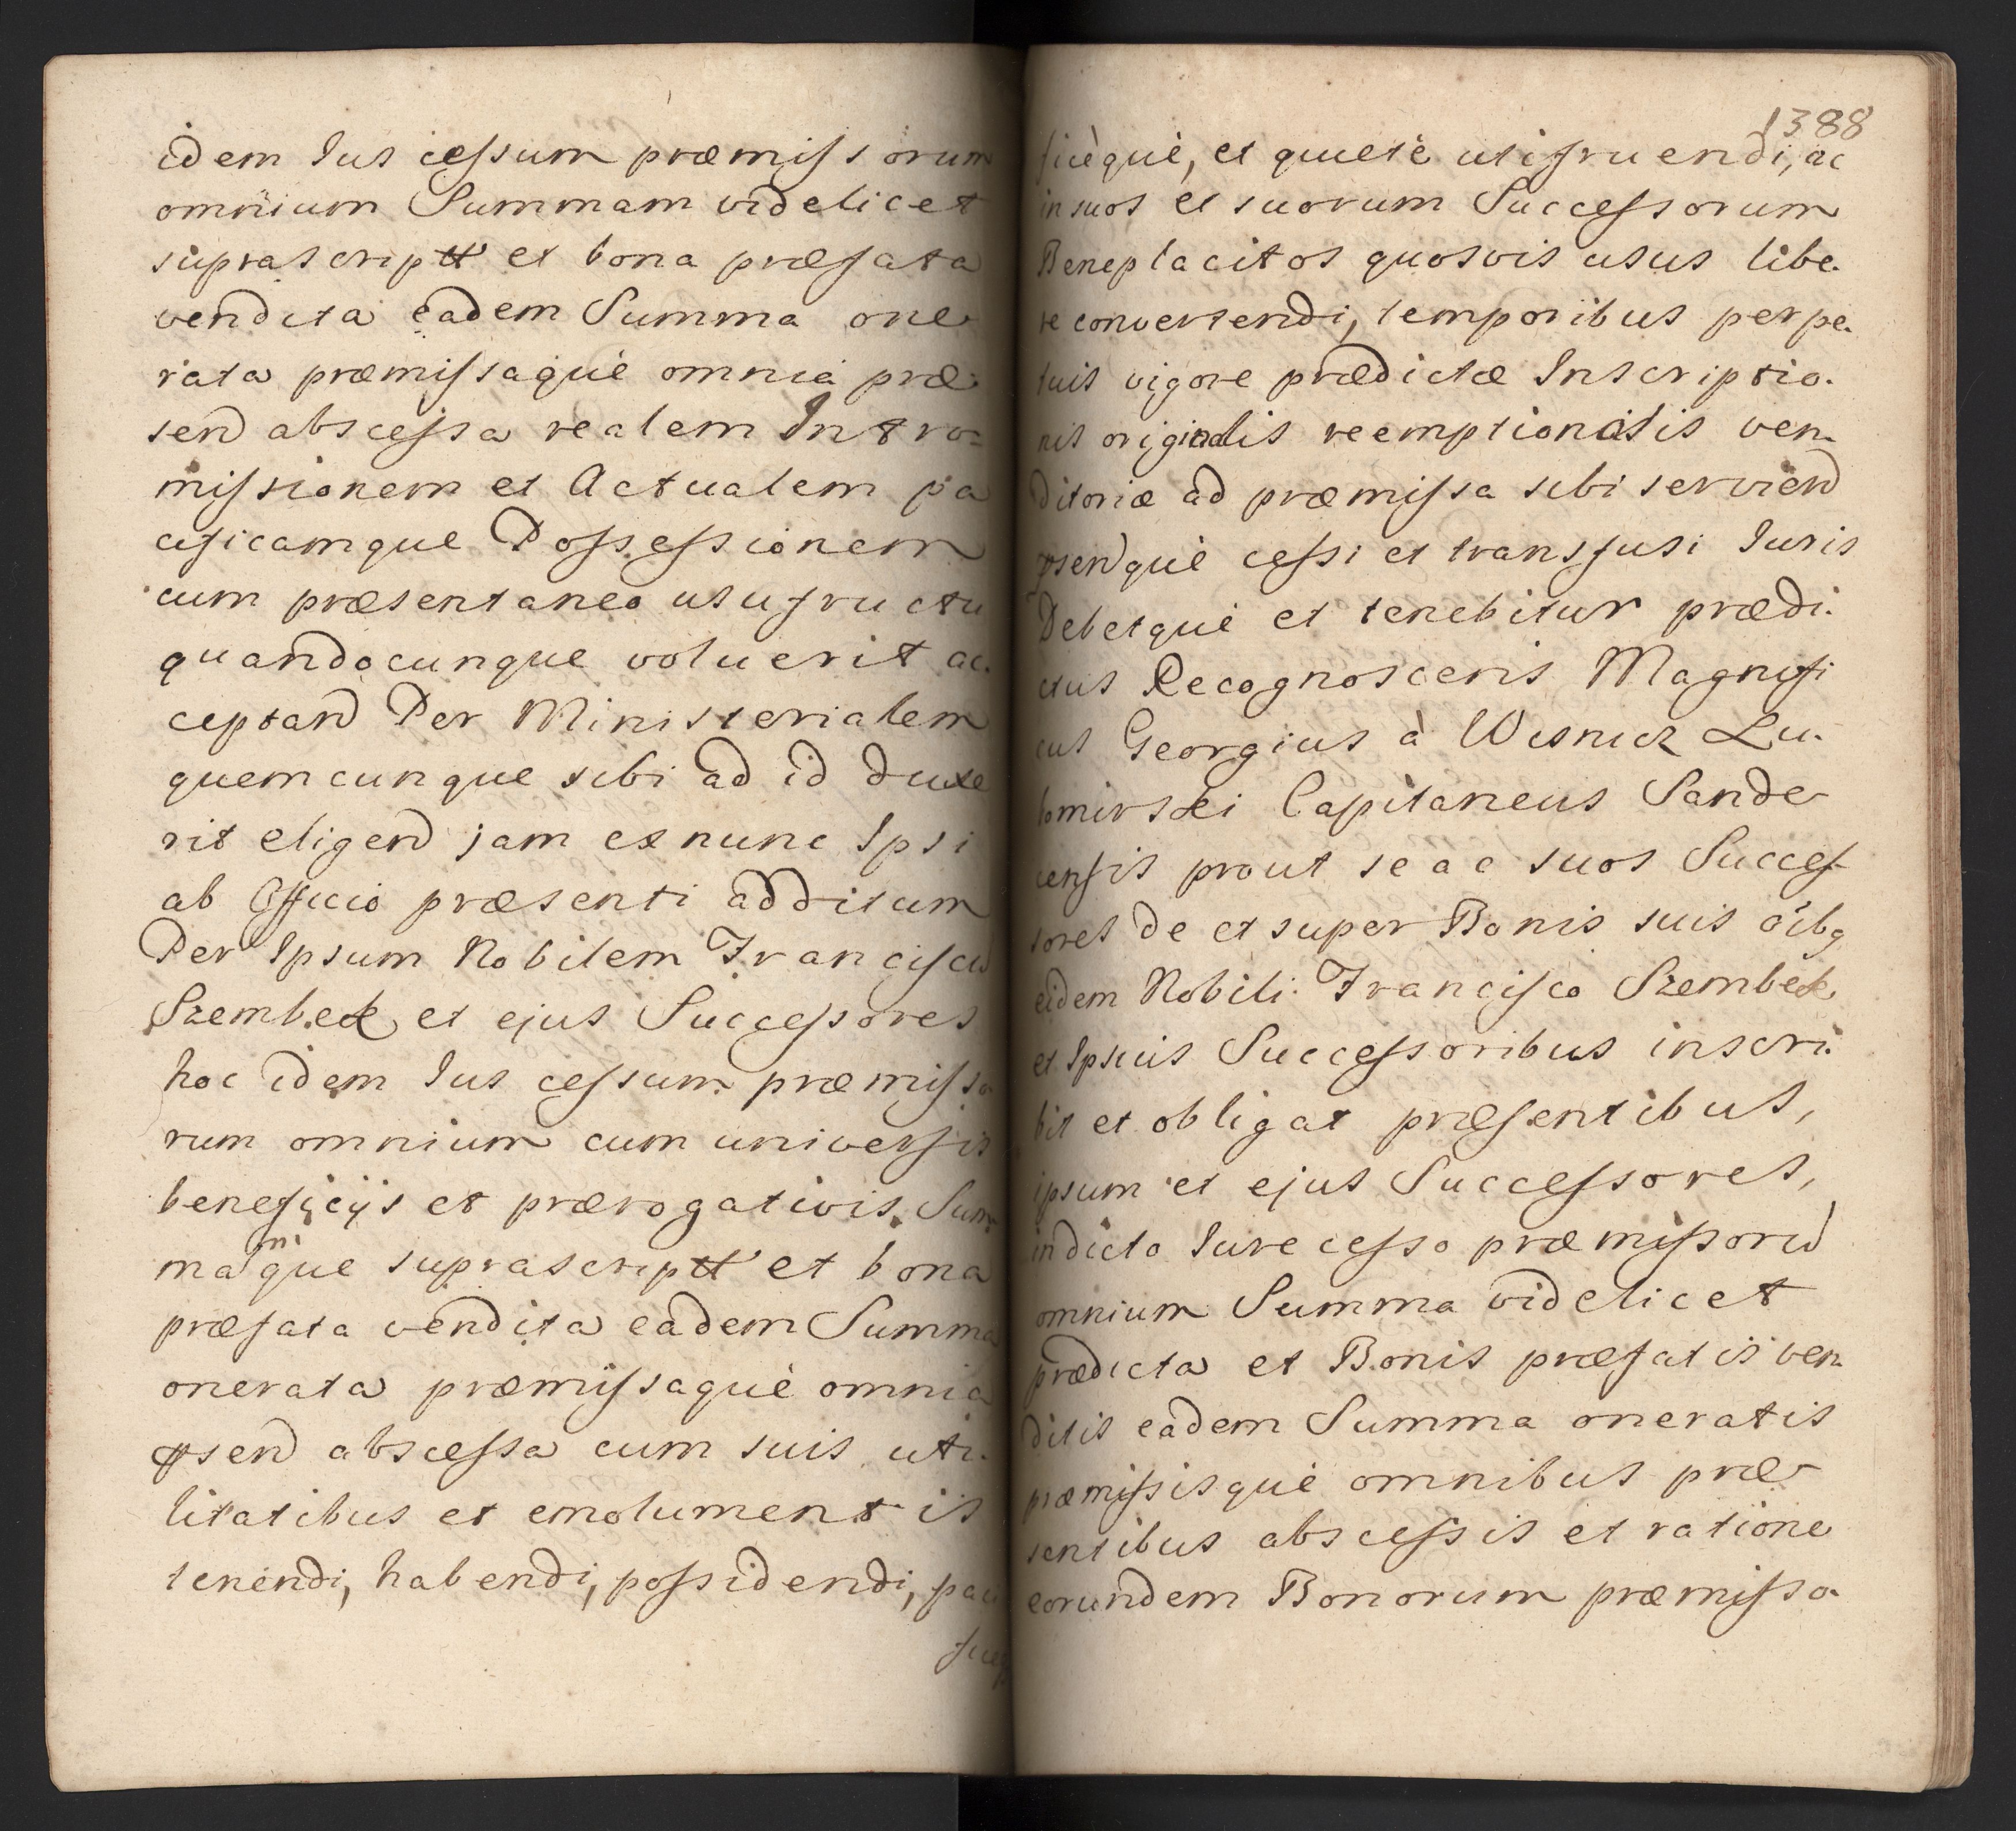 idem Ius cessum præmissorum
omnium Summam videlicet
suprascriptt et bona præfata
vendita eadem Summa one
rata præmissaquè omnia præ
send abscessa realem Intro=
missionem et Actualem pa
cificamque Possessionem
cum præsentaneo usufructu
quandocunque voluerit ac.
ceptand Per Ministerialem
quemcunque sibi ad id duxe
rit eligend jam ex nunc Ipsi
ab Officio præsenti additum
Per Ipsum Nobilem Franciscu
Szembek et ejus Successores
hoc idem Ius cessum præmisso
rum omnium cum universis
beneficijs et prærogativis Sum
mamque suprascriptt et bona
præfata vendita eadem Summa
onerata præmissaquè omnia
psend abscessa cum suis uti.
litatibus et emolumentis
tenendi, habendi, possidendi, paci
1388
ficèquè, et quietè utifruendi, ac
in suos et suorum Successorum
Beneplacitos quosvis usus libe.
re convertendi, temporibus perpe.
tuis vigore prædictæ Inscriptio.
nis originalis reemptionalis ven.
ditoriæ ad præmissa sibi serviend
psendquè cessi et transfusi Iuris
Debetquè et tenebitur prædi.
ctus Recognoscens Magnifi
cus Georgius à Wisnicz Lu.
bomirski Capitaneus Sande
censis prout se ac suos Succes
sores de et super Bonis suis oibq
eidem Nobili Francisco Szembek
et Ipsius Successoribus inscri.
bit et obligat præsentibus,
ipsum et ejus Successores,
in dicto Iure cesso præmissoru
omnium Summa videlicet
prædicta et Bonis præfatis ven
ditis eadem Summa oneratis
præmissisquè omnibus præ
sentibus abscessis et ratione
eorundem Bonorum præmisso